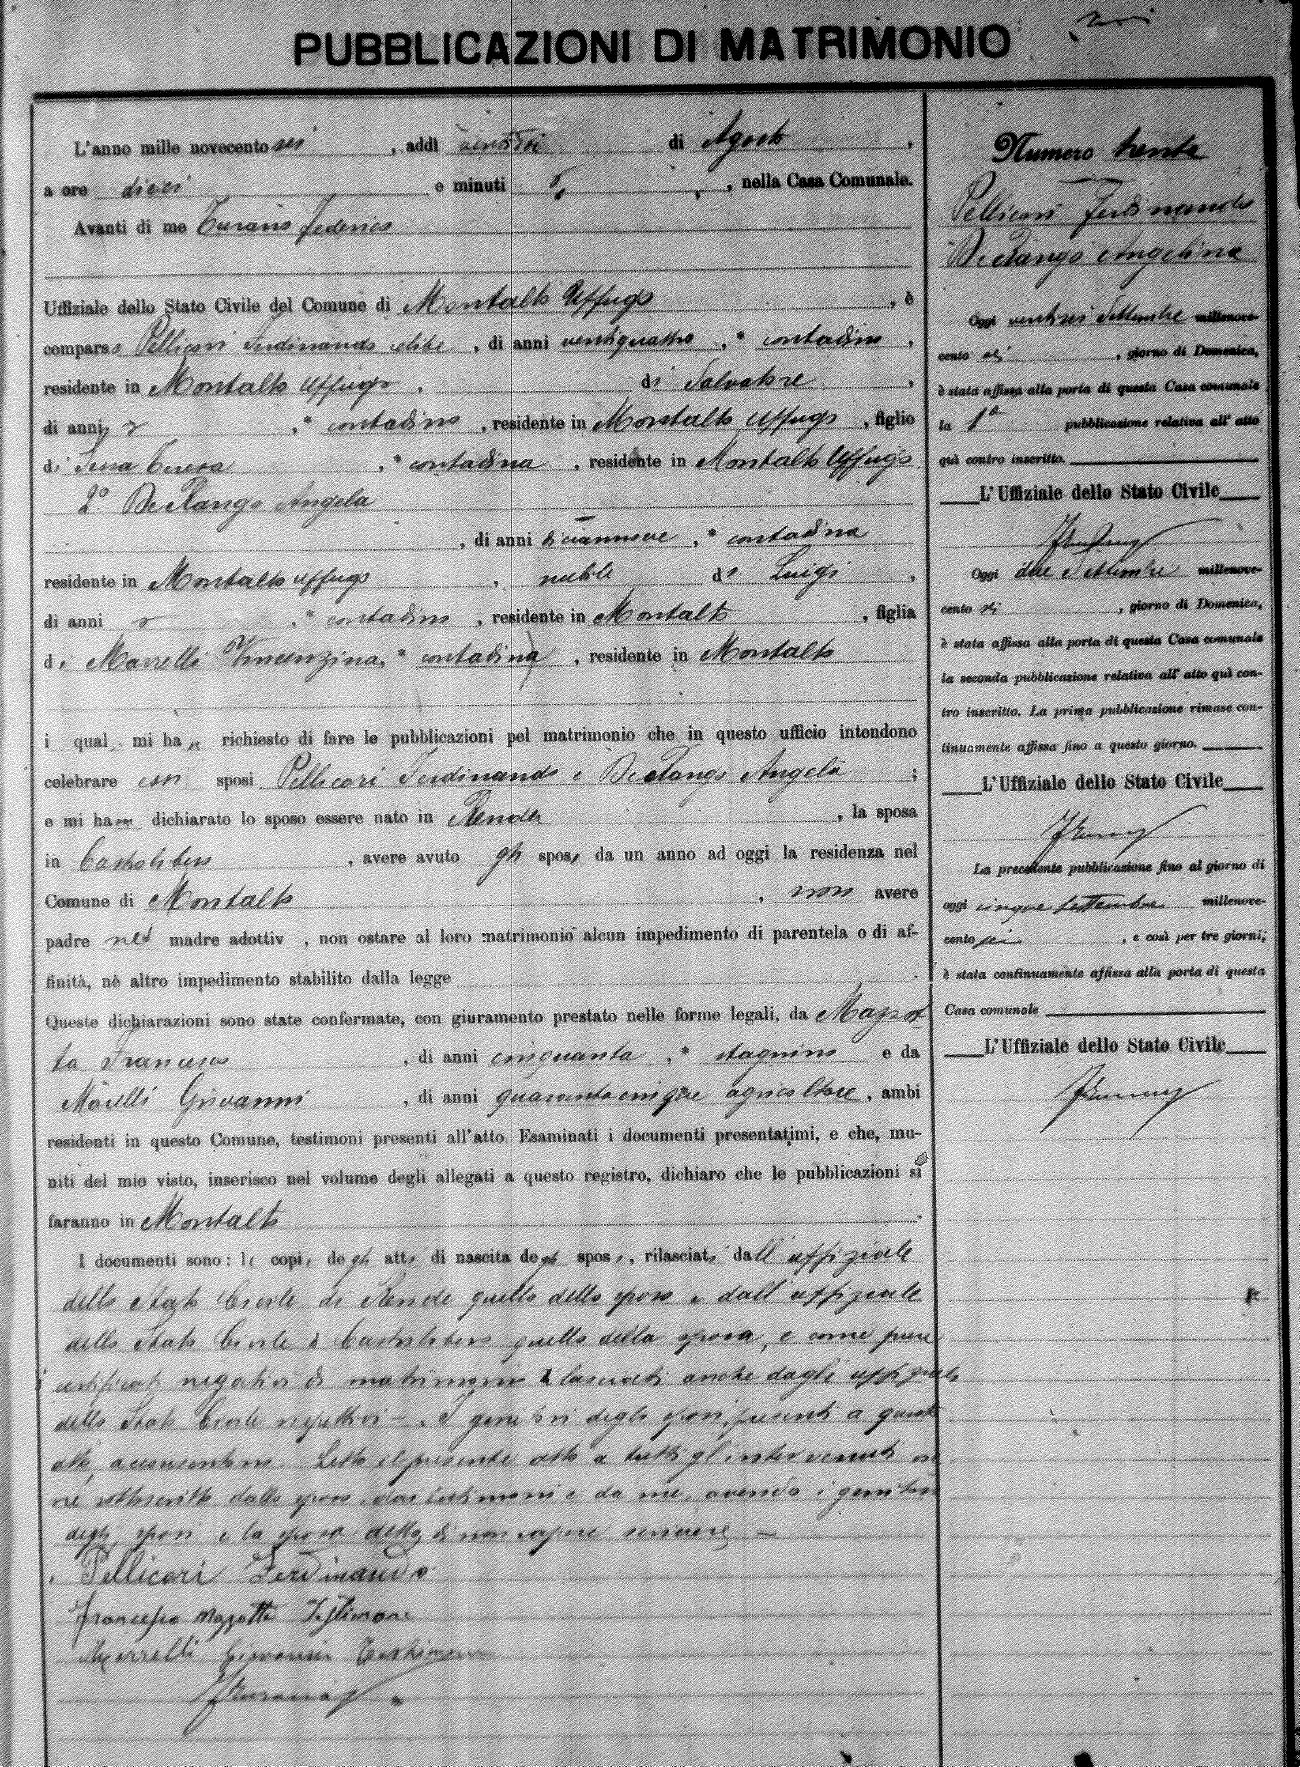 PUBBLICAZIONI DI MATRIMONIO
L'anno mille novecento sei, addì di Agosto,
a ore dieci e minuti, nella Casa Comunale.
Avanti di me Turano Federico
Uffiziale dello Stato Civile del Comune di Montalto Uffugo, è
compars Pellicori Ferdinando celibe, di anni ventiquattro, contadino,
residente in Montalto Uffugo, di Salvatore,
di anni, contadino, residente in Montalto Uffugo, figlio
di Teresa, contadina, residente in Montalto Uffugo
2° De Rango Angela
, di anni diciannove, contadina
residente in Montalto Uffugo, nubile di Luigi,
di anni, contadino, residente in Montalto, figlia
di Marrelli Vincenzina, contadina, residente in Montalto
i qual mi ha richiesto di fare le pubblicazioni pel matrimonio che in questo ufficio intendono
celebrare essi sposi Pellicori Ferdinando e De Rango Angela;
e mi ha dichiarato lo sposo essere nato in Rende, la sposa
in Castrolibero, avere avuto gli sposi da un anno ad oggi la residenza nel
Comune di Montalto, non avere
padre nè madre adottiv, non ostare al loro matrimonio alcun impedimento di parentela o di af-
finità, nè altro impedimento stabilito dalla legge.
Queste dichiarazioni sono state confermate, con giuramento prestato nelle forme legali, da Mazzot
ta Francesco, di anni cinquanta, stagnino e da
Marelli Giovanni, di anni quarantacinque agricoltore, ambi
residenti in questo Comune, testimoni presenti all'atto. Esaminati i documenti presentatimi, e che, mu-
niti del mio visto, inserisco nel volume degli allegati a questo registro, dichiaro che le pubblicazioni si
faranno in Montalto.
I documenti sono: le copie degli atti di nascita degli sposi, rilasciate dall'uffiziale
dello Stato Civile di Rende quella dello sposo e dall'uffiziale
dello Stato Civile di Castrolibero quella della sposa, e come pure
certificati negativi di matrimonio rilasciati anche dagli uffiziali
dello Stato Civile rispettivi. I genitori degli sposi, presenti a questo
atto, acconsentono. Letto il presente atto a tutti gl'intervenuti
sottoscritto dallo sposo, dai testimoni e da me, avendo i genitori
degli sposi e la sposa detto di non sapere scrivere
Pellicori Ferdinando
Francesco Mazzotta Testimone
Marrelli Giovanni Testimone
FTurano
Numero trenta
Pellicori Ferdinando
De Rango Angelina
Oggi ventisei Settembre millenove-
cento sei, giorno di Domenica,
è stata affissa alla porta di questa Casa comunale
la 1ª pubblicazione relativa all'atto
quà contro inscritto.
L'Uffiziale dello Stato Civile
FTurano
Oggi due Settembre millenove-
cento sei, giorno di Domenica,
è stata affissa alla porta di questa Casa comunale
la seconda pubblicazione relativa all'atto quì con-
tro inscritto. La prima pubblicazione rimase con-
tinuamente affissa fino a questo giorno.
L'Uffiziale dello Stato Civile
FTurano
La precedente pubblicazione fino al giorno di
oggi cinque settembre millenove-
cento sei, e così per tre giorni,
è stata continuamente affissa alla porta di questa
Casa comunale
L'Uffiziale dello Stato Civile
FTurano